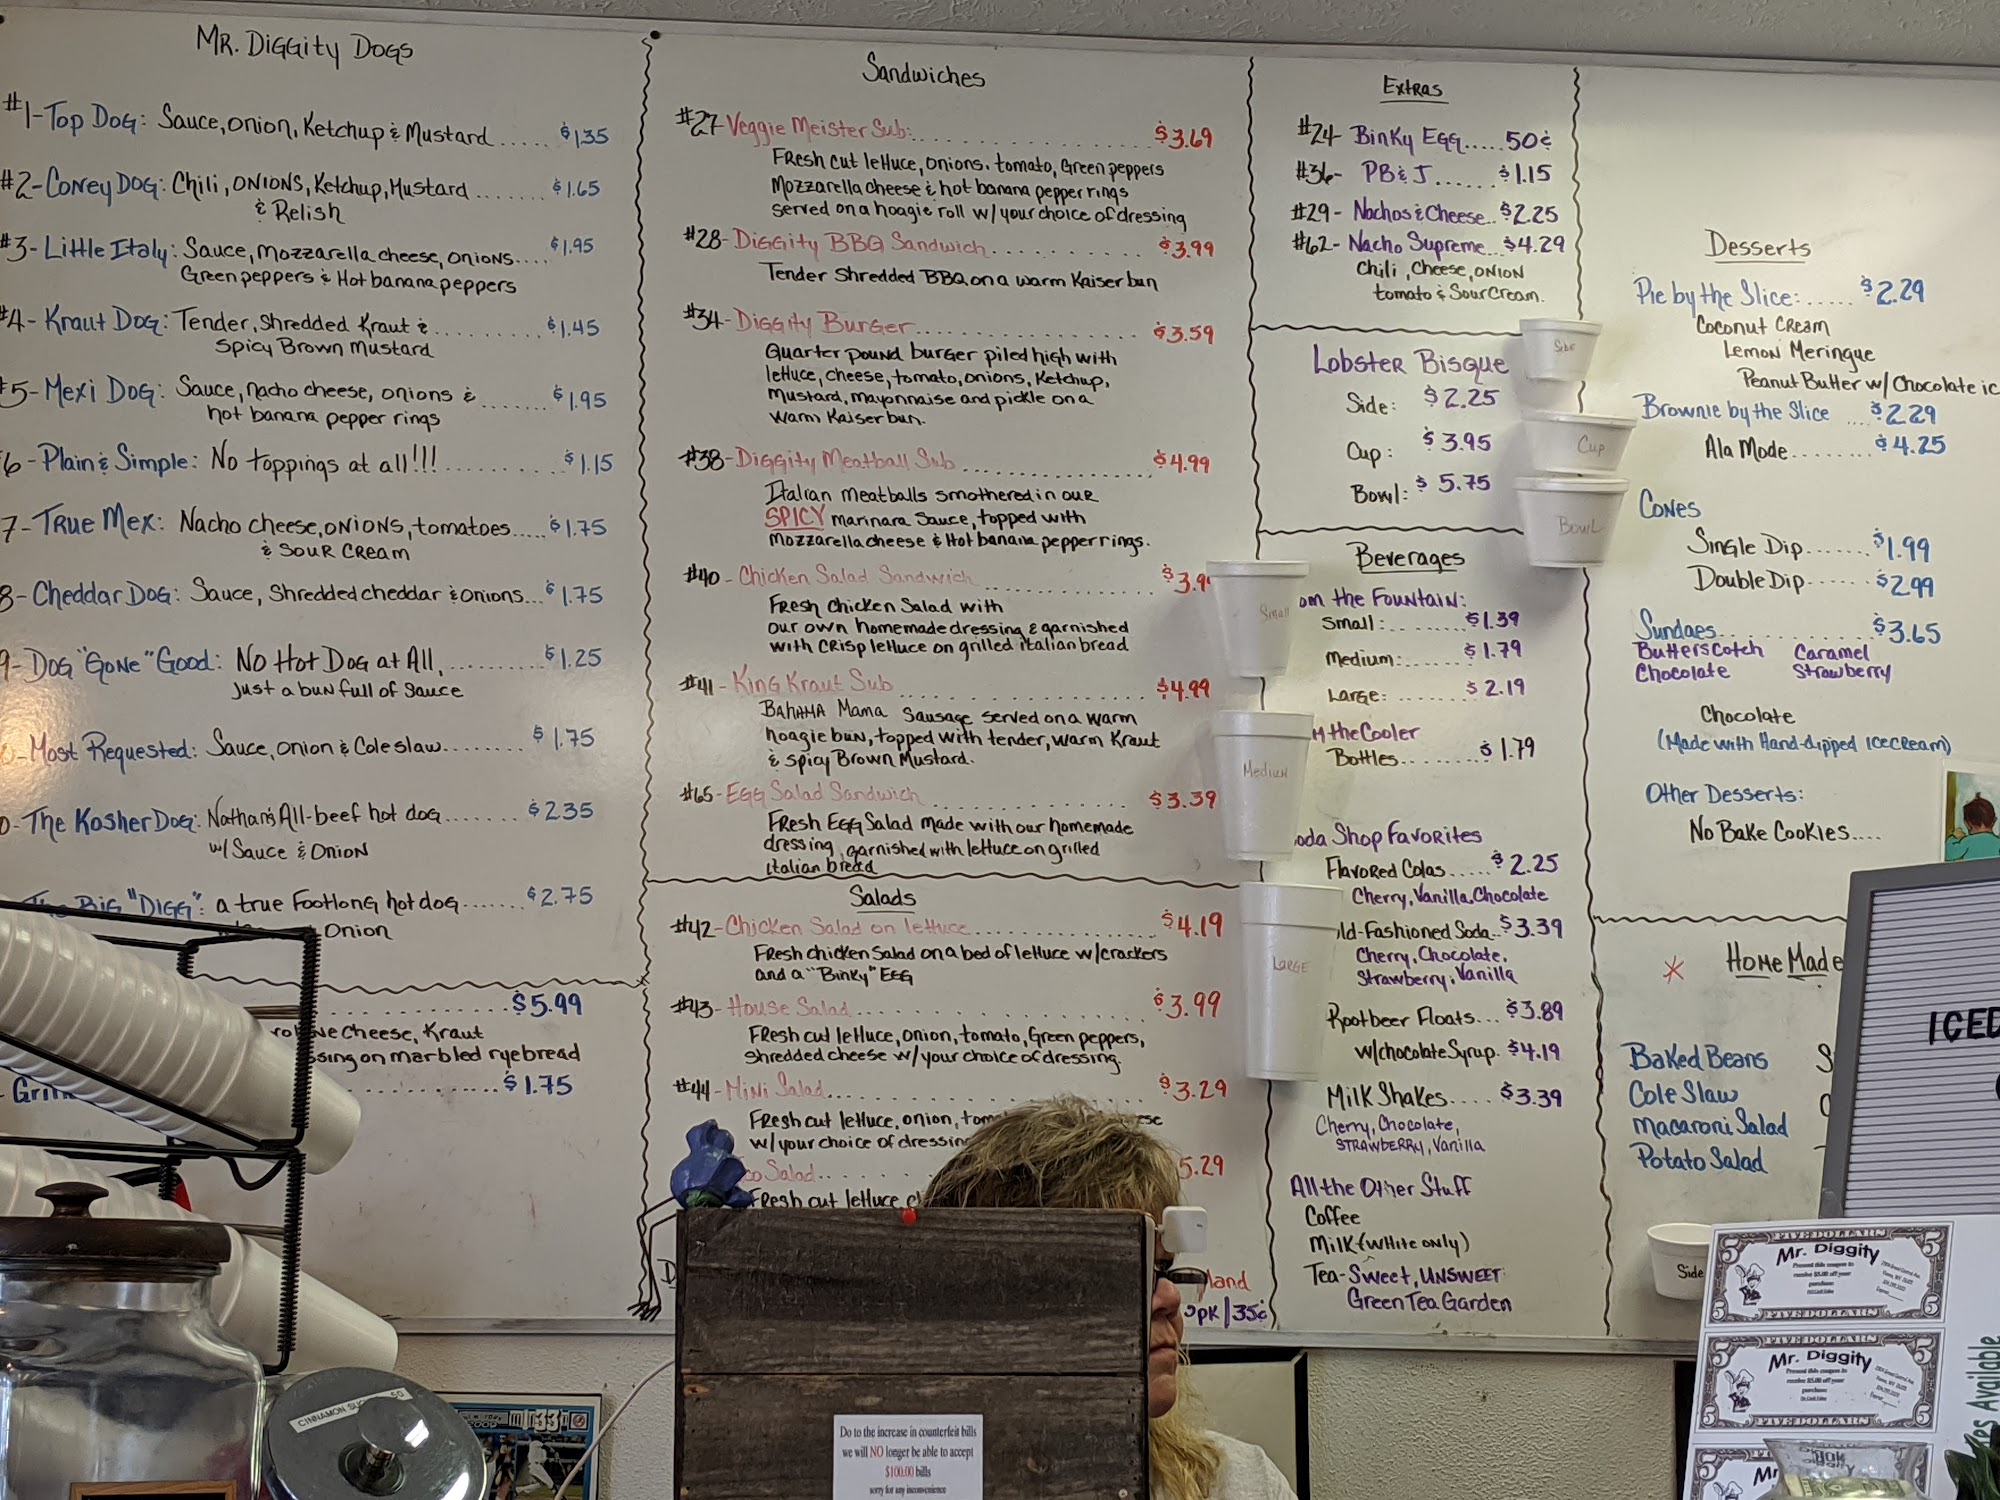 Mr. Diggity Dogs
#1-Top Dog: Sauce, Onion, Ketchup & Mustard..... $1.35
#2-Coney Dog: Chili, Onions, Ketchup, Mustard....... $1.65
& Relish
#3-Little Italy: Sauce, Mozzarella cheese, onions.... $1.95
Green peppers & Hot banana peppers
#4-Kraut Dog: Tender, Shredded Kraut &.......... $1.45
Spicy Brown Mustard
#5-Mexi Dog: Sauce, nacho cheese, onions &....... $1.95
hot banana pepper rings
6-Plain & Simple: No toppings at all!!!.......... $1.15
7-True Mex: Nacho cheese, onions, tomatoes..... $1.75
& Sour Cream
8-Cheddar Dog: Sauce, Shredded cheddar & onions... $1.75
9-Dog "Gone" Good: No Hot Dog at All,......... $1.25
Just a bun full of Sauce
-Most Requested: Sauce, onion & Coleslaw........ $1.75
-The Kosher Dog: Nathan's All-beef hot dog....... $2.35
w/ Sauce & Onion
The Big "Digg": a true Footlong hot dog....... $2.75
Onion
$5.99
Cheese, Kraut
on marbled rye bread
$1.75
Sandwiches
#27-Veggie Meister Sub:.............. $3.69
Fresh cut lettuce, onions. tomato, Green peppers
Mozzarella cheese & hot banana pepper rings
served on a hoagie roll w/ your choice of dressing
#28-Diggity BBQ Sandwich.......... $3.99
Tender Shredded BBQ on a warm Kaiser bun
#34-Diggity Burger................ $3.59
Quarter pound burger piled high with
lettuce, cheese, tomato, onions, Ketchup,
Mustard, mayonnaise and pickle on a
warm Kaiser bun.
#38-Diggity Meatball Sub.............. $4.99
Italian meatballs smothered in our
SPICY marinara sauce, topped with
Mozzarella cheese & Hot banana pepper rings.
#40-Chicken Salad Sandwich............ $3.9
Fresh chicken Salad with
our own homemade dressing & garnished
with crisp lettuce on grilled italian bread
#41-King Kraut Sub.............. $4.99
Bahama Mama Sausage served on a warm
hoagie bun, topped with tender, warm Kraut
& Spicy Brown Mustard.
#65-Egg Salad Sandwich............ $3.39
Fresh Egg Salad made with our homemade
dressing, garnished with lettuce on grilled
italian bread
Salads
#42-Chicken Salad on lettuce............ $4.19
Fresh chicken Salad on a bed of lettuce w/crackers
and a "Binky" Egg
#43-House Salad.............. $3.99
Fresh cut lettuce, onion, tomato, Green peppers,
shredded cheese w/ your choice of dressing.
#44-Mini Salad.............. $3.29
Fresh cut lettuce, onion,
w/ your choice of dressing
Salad....... 5.29
Fresh cut lettuce,
land
pk/35¢
Extras
#24-Binky Egg.....50¢
#36-PB & J....... $1.15
#29-Nachos & Cheese.. $2.25
#62-Nacho Supreme... $4.29
Chili, Cheese, Onion
tomato & Sour Cream.
Lobster Bisque
Side: $2.25
Cup: $3.95
Bowl: $5.75
Side
Cup
Bowl
Beverages
om the Fountain:
Small:......... $1.39
Medium:....... $1.79
Large:........ $2.19
m the Cooler
Bottles......... $1.79
Small
Medium
Large
oda Shop Favorites
Flavored Colas..... $2.25
Cherry, Vanilla, Chocolate
ld-Fashioned Soda.. $3.39
Cherry, Chocolate,
Strawberry, Vanilla
Rootbeer Floats... $3.89
w/chocolate Syrup. $4.19
Milk Shakes.... $3.39
Cherry, Chocolate,
Strawberry, Vanilla
All the Other Stuff
Coffee
Milk (White only)
Tea-Sweet, Unsweet
Green Tea Garden
Desserts
Pie by the Slice:...... $2.29
Coconut Cream
Lemon Meringue
Peanut Butter w/ Chocolate ic
Brownie by the Slice.... $2.29
Ala Mode........ $4.25
Cones
Single Dip....... $1.99
Double Dip...... $2.99
Sundaes............ $3.65
Butterscotch Caramel
Chocolate Strawberry
Chocolate
(Made with Hand-dipped icecream)
Other Desserts:
No Bake Cookies....
* Home Made
Baked Beans
Cole Slaw
Macaroni Salad
Potato Salad
Side
ICED
FIVE DOLLARS
Mr. Diggity
FIVE DOLLARS
FIVE DOLLARS
Mr. Diggity
FIVE DOLLARS
Available
CINNAMON
Do to the increase in counterfeit bills
we will NO longer be able to accept
$100.00 bills
sorry for any inconvenience